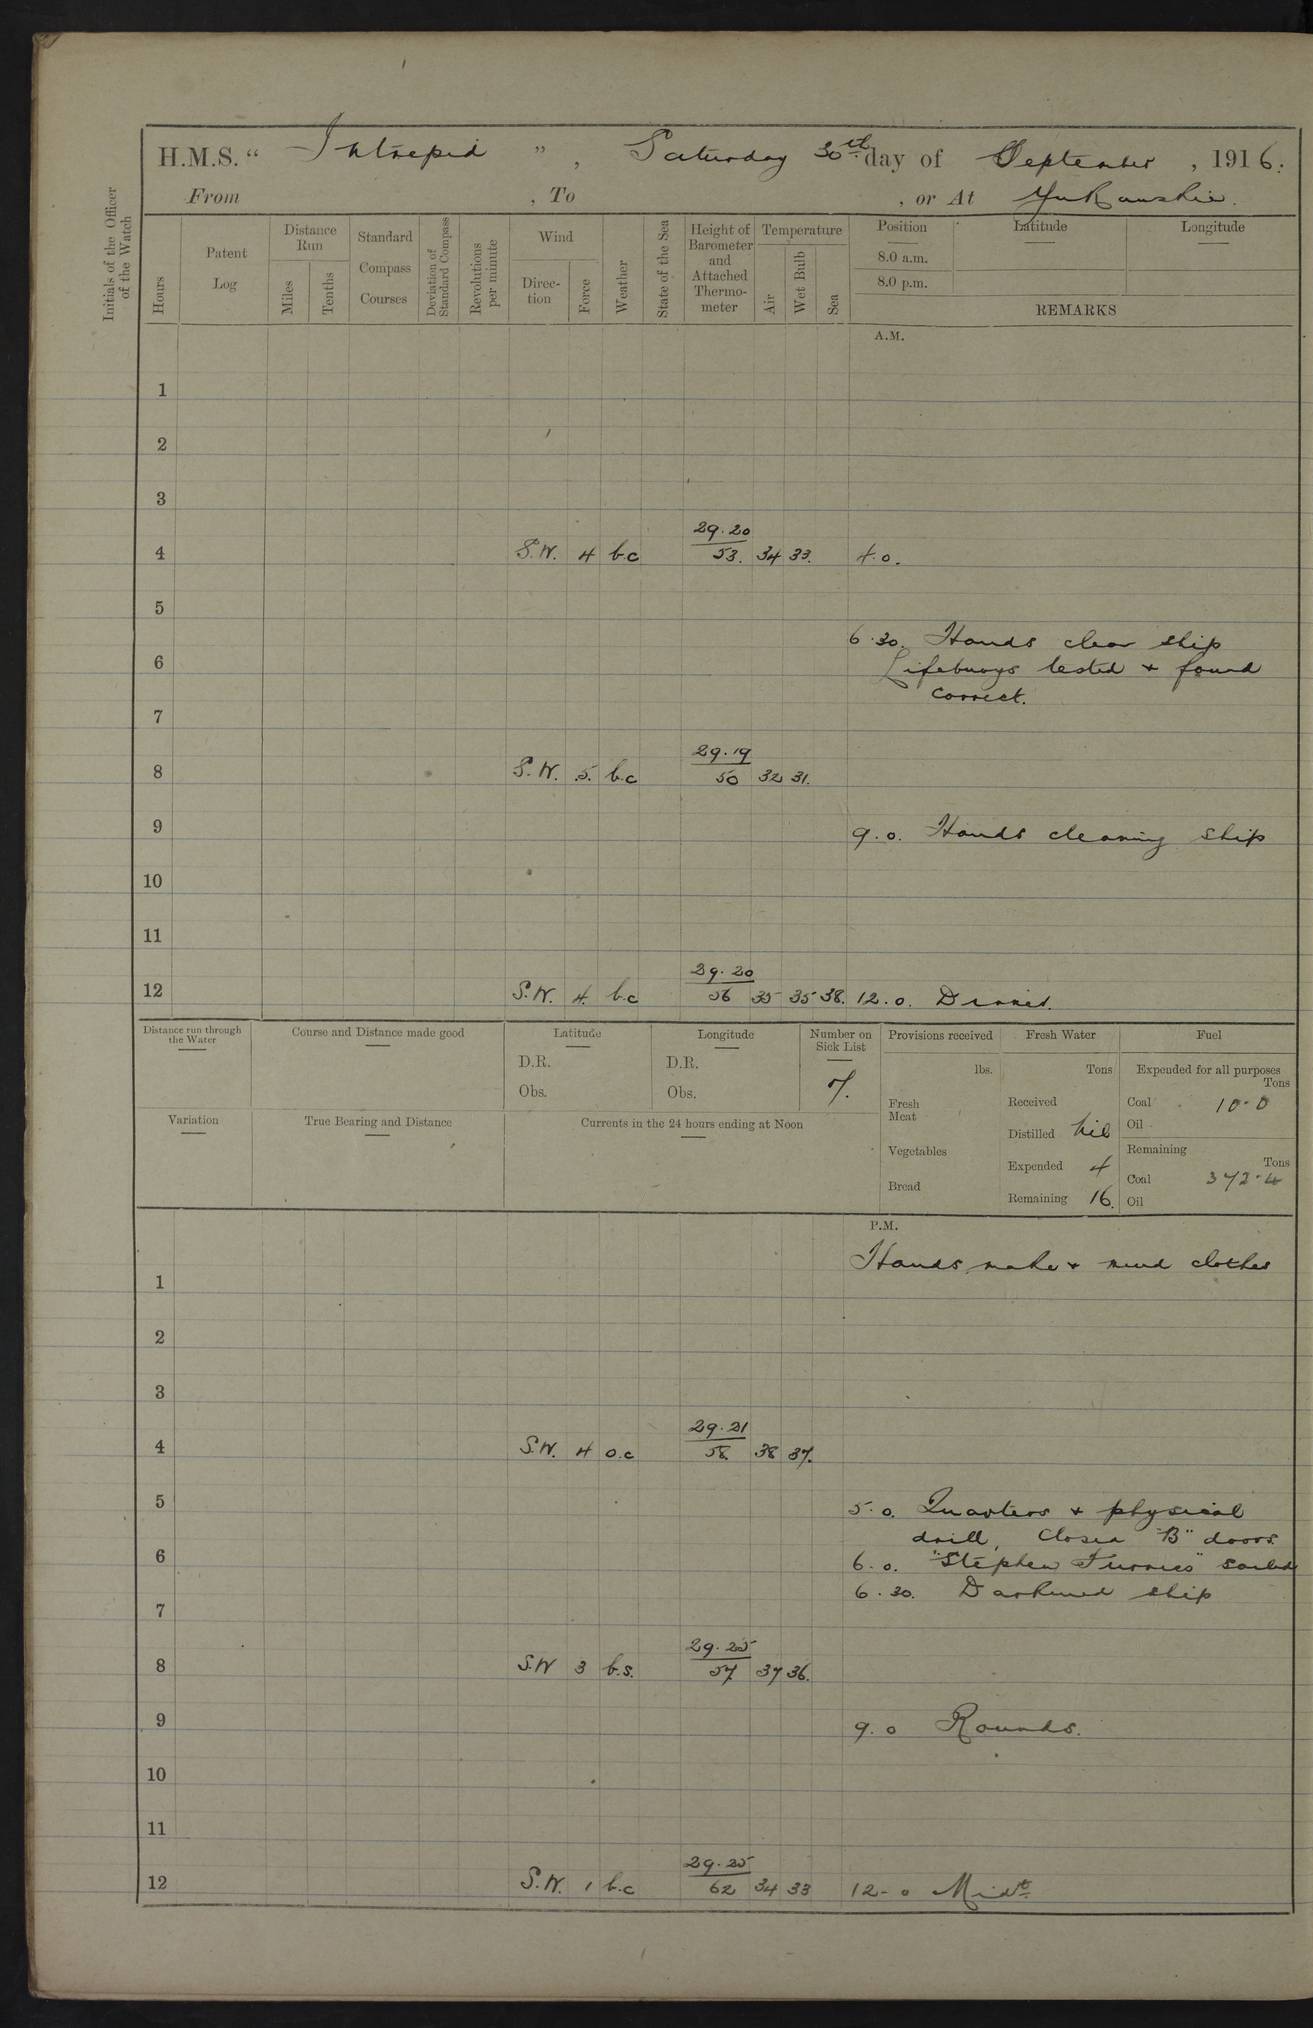 H.M.S. “ Intrepid ” , Saturday 30th day of September , 1916.
From , To , or At Yukanskie.
Initials of the Officer of the Watch
Hours
Patent Log
Distance Run
Miles
Tenths
Standard Compass Courses
Deviation of Standard Compass
Revolutions per minute
Wind
Direc-tion
Force
Weather
State of the Sea
Height of Barometer and Attached Thermo-meter
Temperature
Air
Wet Bulb
Sea
Position
Latitude
Longitude
8.0 a.m.
8.0 p.m.
REMARKS
A.M.
1
2
3
29.20
4 S.W. 4 b.c 53. 34 33. 4.0.
5
6.30. Hands clear ship
6 Lifebuoys tested + found
correct.
7
29.19
8 S.W. 5. b.c 50 32 31.
9 9.0. Hands cleaning ship
10
11
29.20
12 S.W. 4. b.c 56 35 35 38. 12.0.
Distance run through the Water
Course and Distance made good
Latitude
D.R.
Obs.
Longitude
D.R.
Obs.
Number on Sick List
7.
Provisions received
lbs.
Fresh Meat
Vegetables
Bread
Fresh Water
Tons
Received
Distilled Nil
Expended 4
Remaining 16.
Fuel
Expended for all purposes
Tons
Coal 10.0
Oil
Remaining
Tons
Coal 372.4
Oil
Variation
True Bearing and Distance
Currents in the 24 hours ending at Noon
P.M.
Hands make + mend clothes
1
2
3
29.21
4 S.W. 4 o.c 58. 38 37.
5 5.0. Quarters + physical
drill, Closed "B" doors.
6 6.0. "Stephen Furness" sailed
6.30. Darkened ship
7
29.25
8 S.W 3 b.s. 57. 37 36.
9 9.0 Rounds.
10
11
29.25
12 S.W. 1 b.c 62 34 33 12-0 Midt.